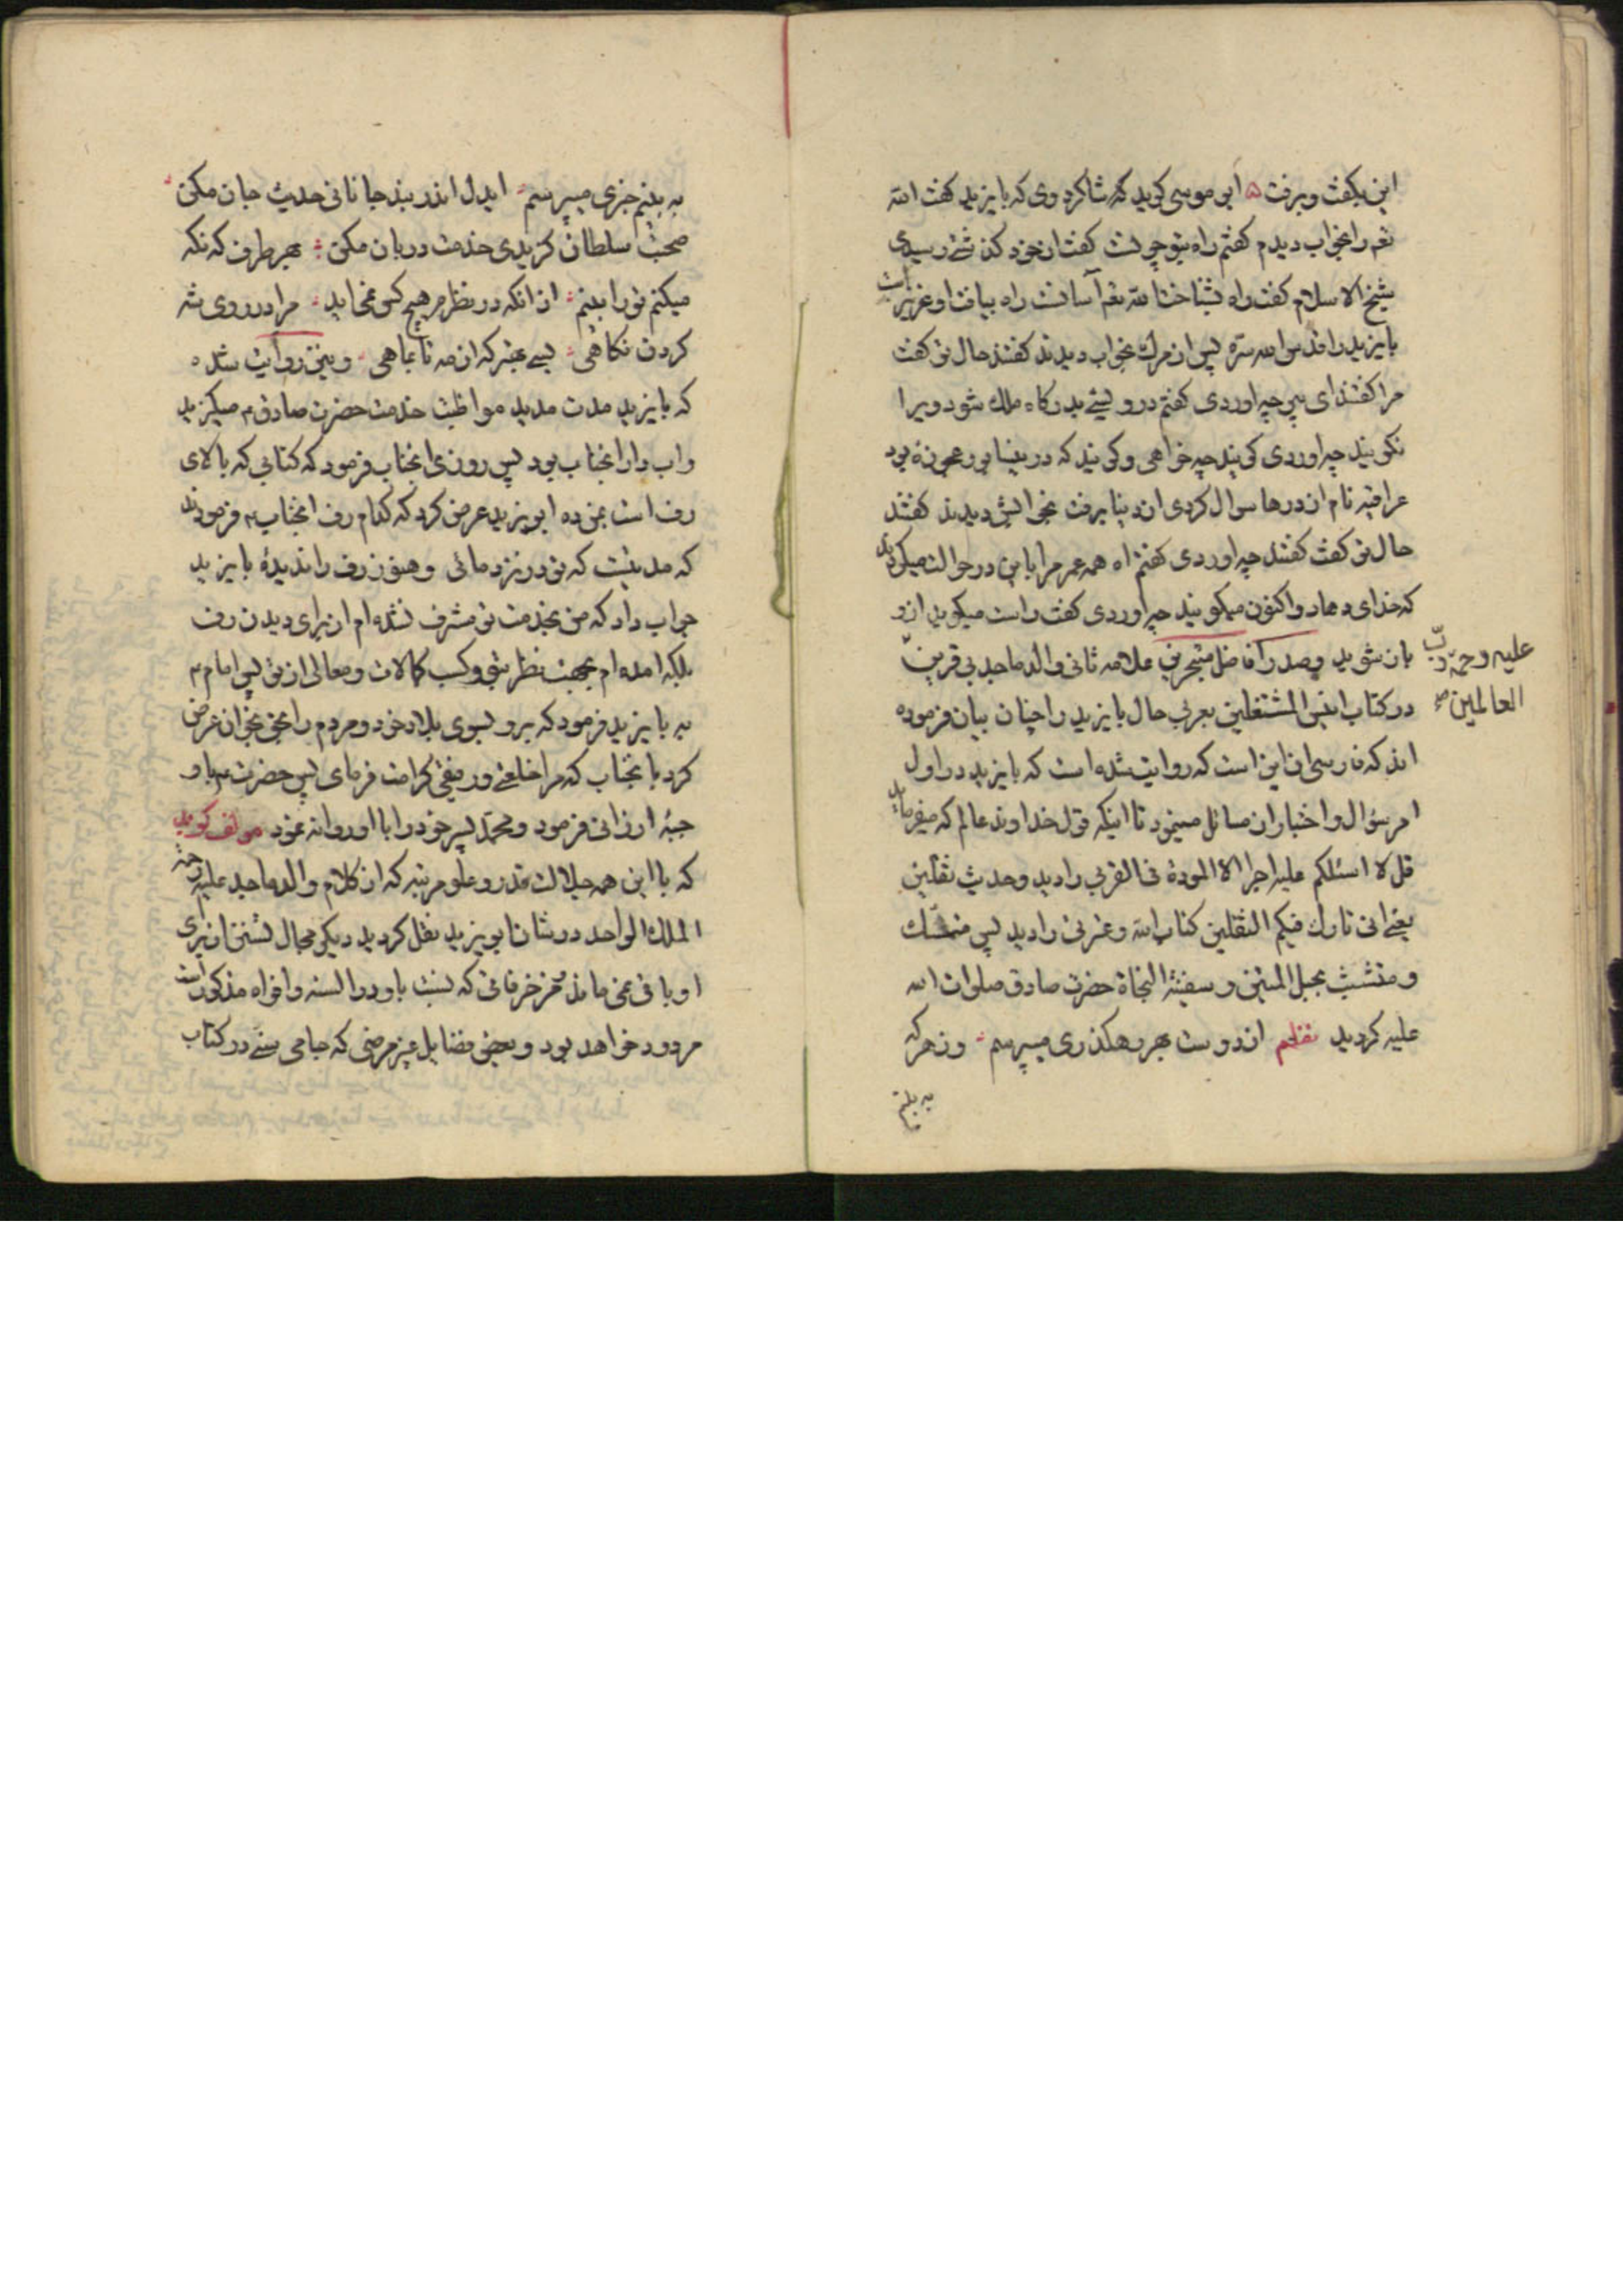 این بگفت و برفت ه ابو موسی کوید که شاکرد وی که بایزید کفت الله
تعم را بخواب دیدم کفتم راه بتو چونست کفت از خود کذشتی رسیدی
شیخ الاسلام کفت راه بشناخت الله تعم آسانست راه بیافت او عزیز است
بایزید را قدس الله سره پس از مرک بخواب دیدند کفتند حال تو کفت
مرا کفتند ای پیر چه اوردی کفتم درویشی بدرکاه ملک شود ویرا
نکویند چه اوردی کویند چه خواهی وکویند که در نیشابور عجوزه بود
عراقیه نام از درها سوال کردی از دنیا برفت بخوابش دیدند کفتند
حال تو کفت کفتند چه اوردی کفتم اه همه عمر مرا باین در حوالت میکردند
که خدای دهاد و اکنون میکویند چه اوردی کفت راست میکوید از و
باز شوید وصدر افاضل متبحرین علامه ثانی والد ماجد بی قرین
علیه رحمة رب
العالمین صح
در کتاب انیس المشتغلین بعربی حال بایزید را چنان بیان فرموده
اند که فارسی ان این است که روایت شده است که بایزید در اول
امر سؤال و اختبار از مسائل مینمود تا اینکه قول خداوند عالم که میفرماید
قل لا اسئلکم علیه اجرا الا المودة فی القربی را دید وحدیث ثقلین
یعنی انی تارک فیکم الثقلین کتاب الله وعترتی را دید پس متمسک
و متشبث بحبل المتین و سفینة النجاة حضرت صادق صلوات الله
علیه کردید نظم از دوست بهر رهکذری میپرسم وز هر که
به بینم
به بینم خبری میپرسم ایدل اندر بند جانانی حدیث جان مکن
صحبت سلطان کزیدی خدمت دربان مکن بهر طرف که نکه
میکنم تو را بینم از انکه در نظرم هیچ کس نمی اید مرا در روی شه
کردن نکاهی بسی بهتر که از مه تا بماهی ونیز روایت شده
که بایزید مدت مدید مواظبت خدمت حضرت صادق ۴ میکزید
واب دار انجناب بود پس روزی انجناب فرمود که کتابی که بالای
رف است بمن ده ابویزید عرض کرد که کدام رف انجناب ۴ فرمودند
که مدتیست که تو در نزد مائی و هنوز رف را ندیدهٔ بایزید
جواب داد که من بخدمت تو مشرف نشده ام از برای دیدن رف
بلکه امده ام بجهت نظر بتو وکسب کمالات ومعالی از تو پس امام ۴
به بایزید فرمود که برو بسوی بلاد خود ومردم را بحق بخوان عرض
کرد با نجناب که مرا خلعتی ورفیقی کرامت فرمای پس حضرت ۴ باو
جبهٔ ارزانی فرمود ومحمد پسر خود را با او روانه نمود مولف کوید
که با این همه جلالت قدر وعلو مرتبه که از کلام والد ماجد علیه رحمة
الملک الواحد در شان ابویزید نقل کردید دیکر مجال لتبری از
او باقی نمی ماند مزخرفاتی که نسبت باو در السنه وافواه مذکور است
مردود خواهد بود وبعض فضایل غیر مرضی که جامی سنی در کتاب